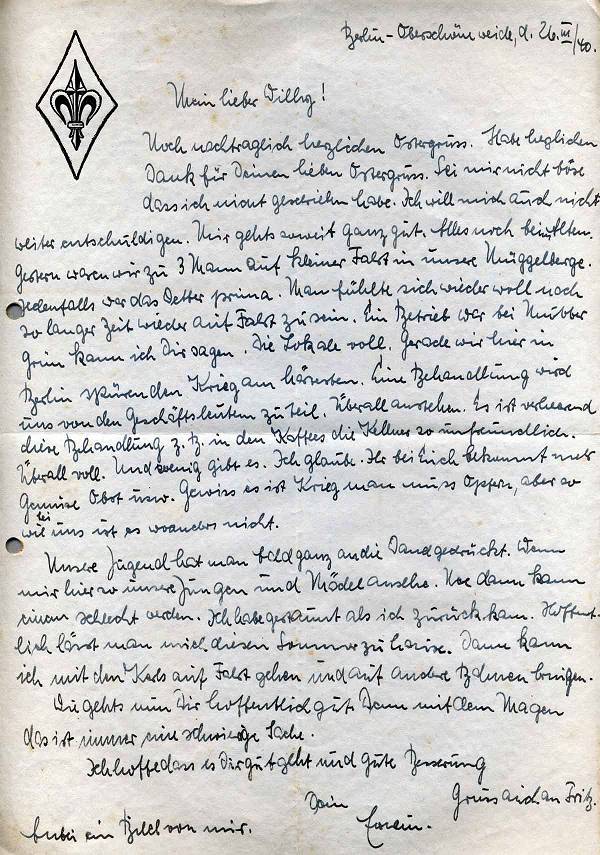 Berlin-Oberschöneweide, d. 26.III/40.
Mein lieber Willy!
Noch nachträglich herzlichen Ostergruss. Habe herzlichen
Dank für Deinen lieben Ostergruss. Sei mir nicht böse
dass ich nicht geschrieben habe. Ich will mich auch nicht
weiter entschuldigen. Mir gehts soweit ganz gut. Alles noch beim Alten.
Gestern waren wir zu 3 Mann auf kleiner Fahrt in unsere Müggelberge.
Jedenfalls war das Wetter prima. Man fühlte sich wieder woll nach
so langer Zeit wieder auf Fahrt zu sein. Ein Betrieb war bei Mutter
Grün kann ich Dir sagen. Die Lokale voll. Gerade wir hier in
Berlin spüren den Krieg am härtesten. Eine Behandlung wird
uns von den Geschäftsleuten zu teil. Überall anstehen. Es ist verheerend
diese Behandlung z. B. in den Kaffees die Kellner so unfreundlich.
Überall voll. Und wenig gibt es. Ich glaube. Ihr bei Euch bekommt mehr
Gemüse Obst usw. Gewiss es ist Krieg man muss opfern, aber so
wie bei uns ist es woanders nicht.
Unsere Jugend hat man bald ganz an die Wand gedrückt. Wenn
mir hier so unsere Jungen und Mädel ansehe. Nee dann kann
einem schlecht werden. Ich habe gestaunt als ich zurück kam. Hoffent-
lich lässt man mich diesen Sommer zu hause. Dann kann
ich mit den Kerls auf Fahrt gehen und auf andere Bahnen bringen.
Wie gehts nun Dir hoffentlich gut. Denn mit dem Magen
das ist immer eine schwierige Sache.
Ich hoffe dass es Dir gut geht und gute Besserung
Gruss auch an Fritz.
Dein
Erwin.
Anbei ein Bild von mir.